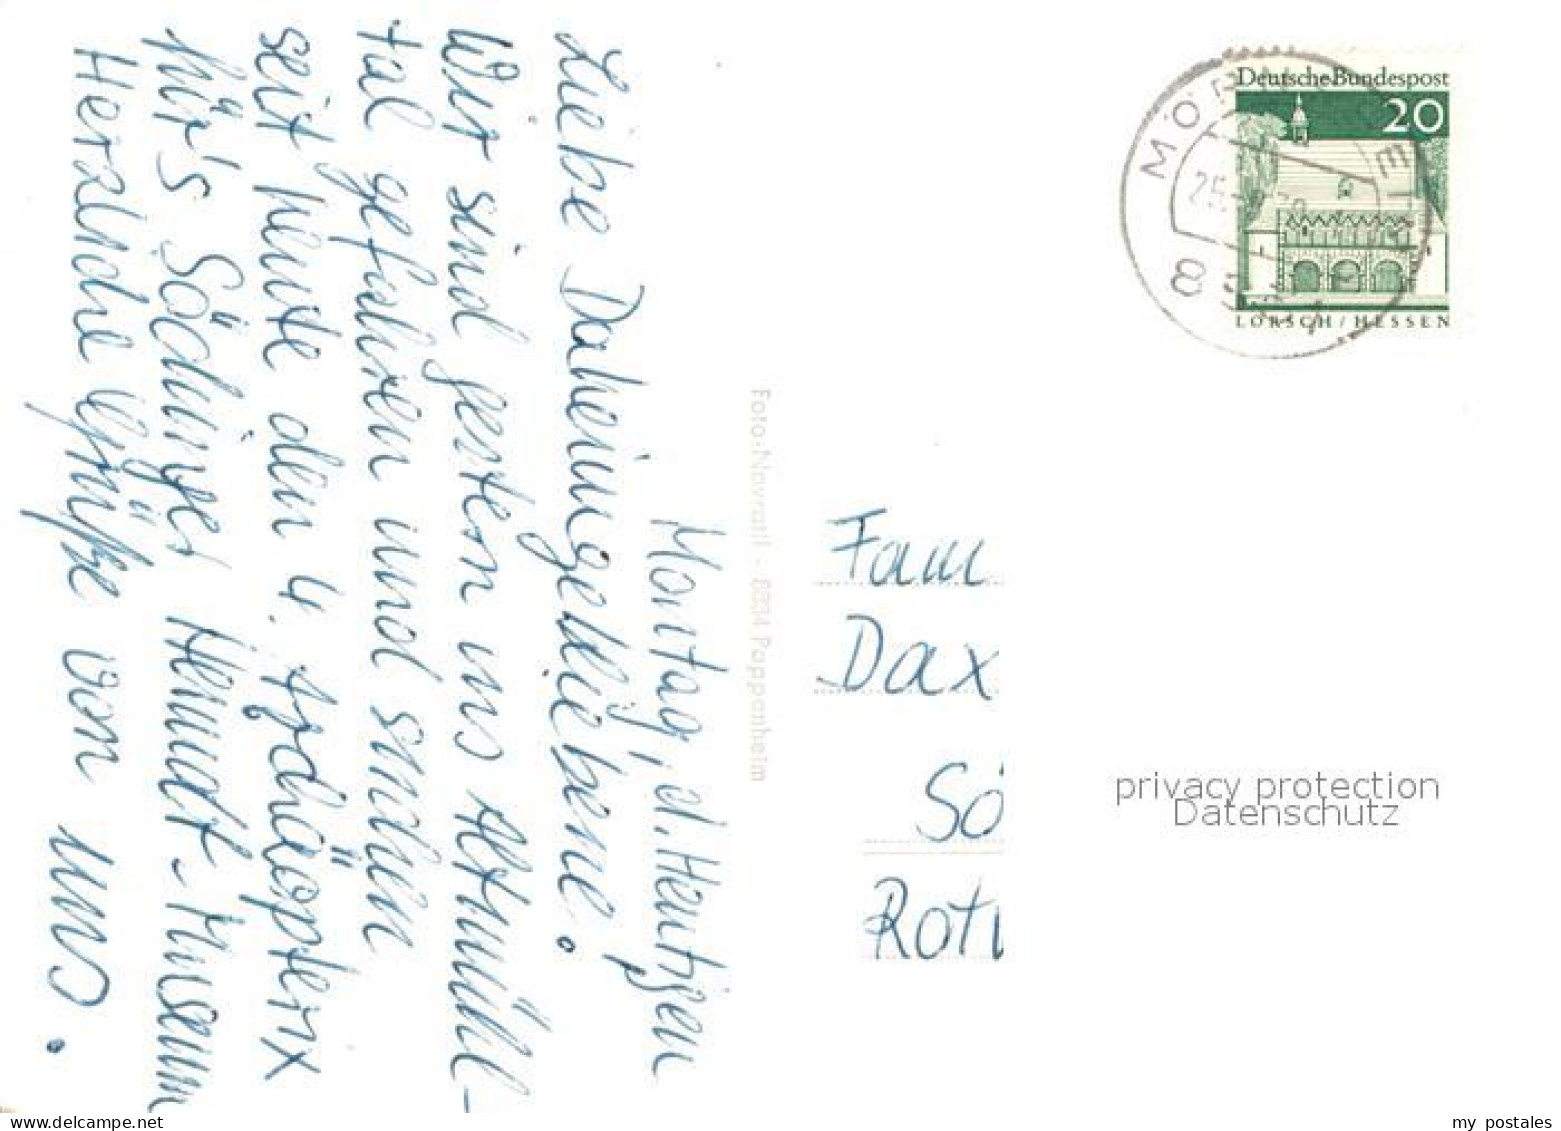 Montag, d. Heutigen
Liebe Daheimgebliebene.
Wir sind gestern ins Altmühl-
tal gefahren und suchen
seit heute den 4. Archäopterix
für's Söchinger Heimat-Museum
Herzliche Grüße von uns.
Foto-Navratil - 8834 Pappenheim
Deutsche Bundespost
20
LORSCH / HESSEN
8
25
Fam
Dax
Sö
privacy protection
Datenschutz
my postales